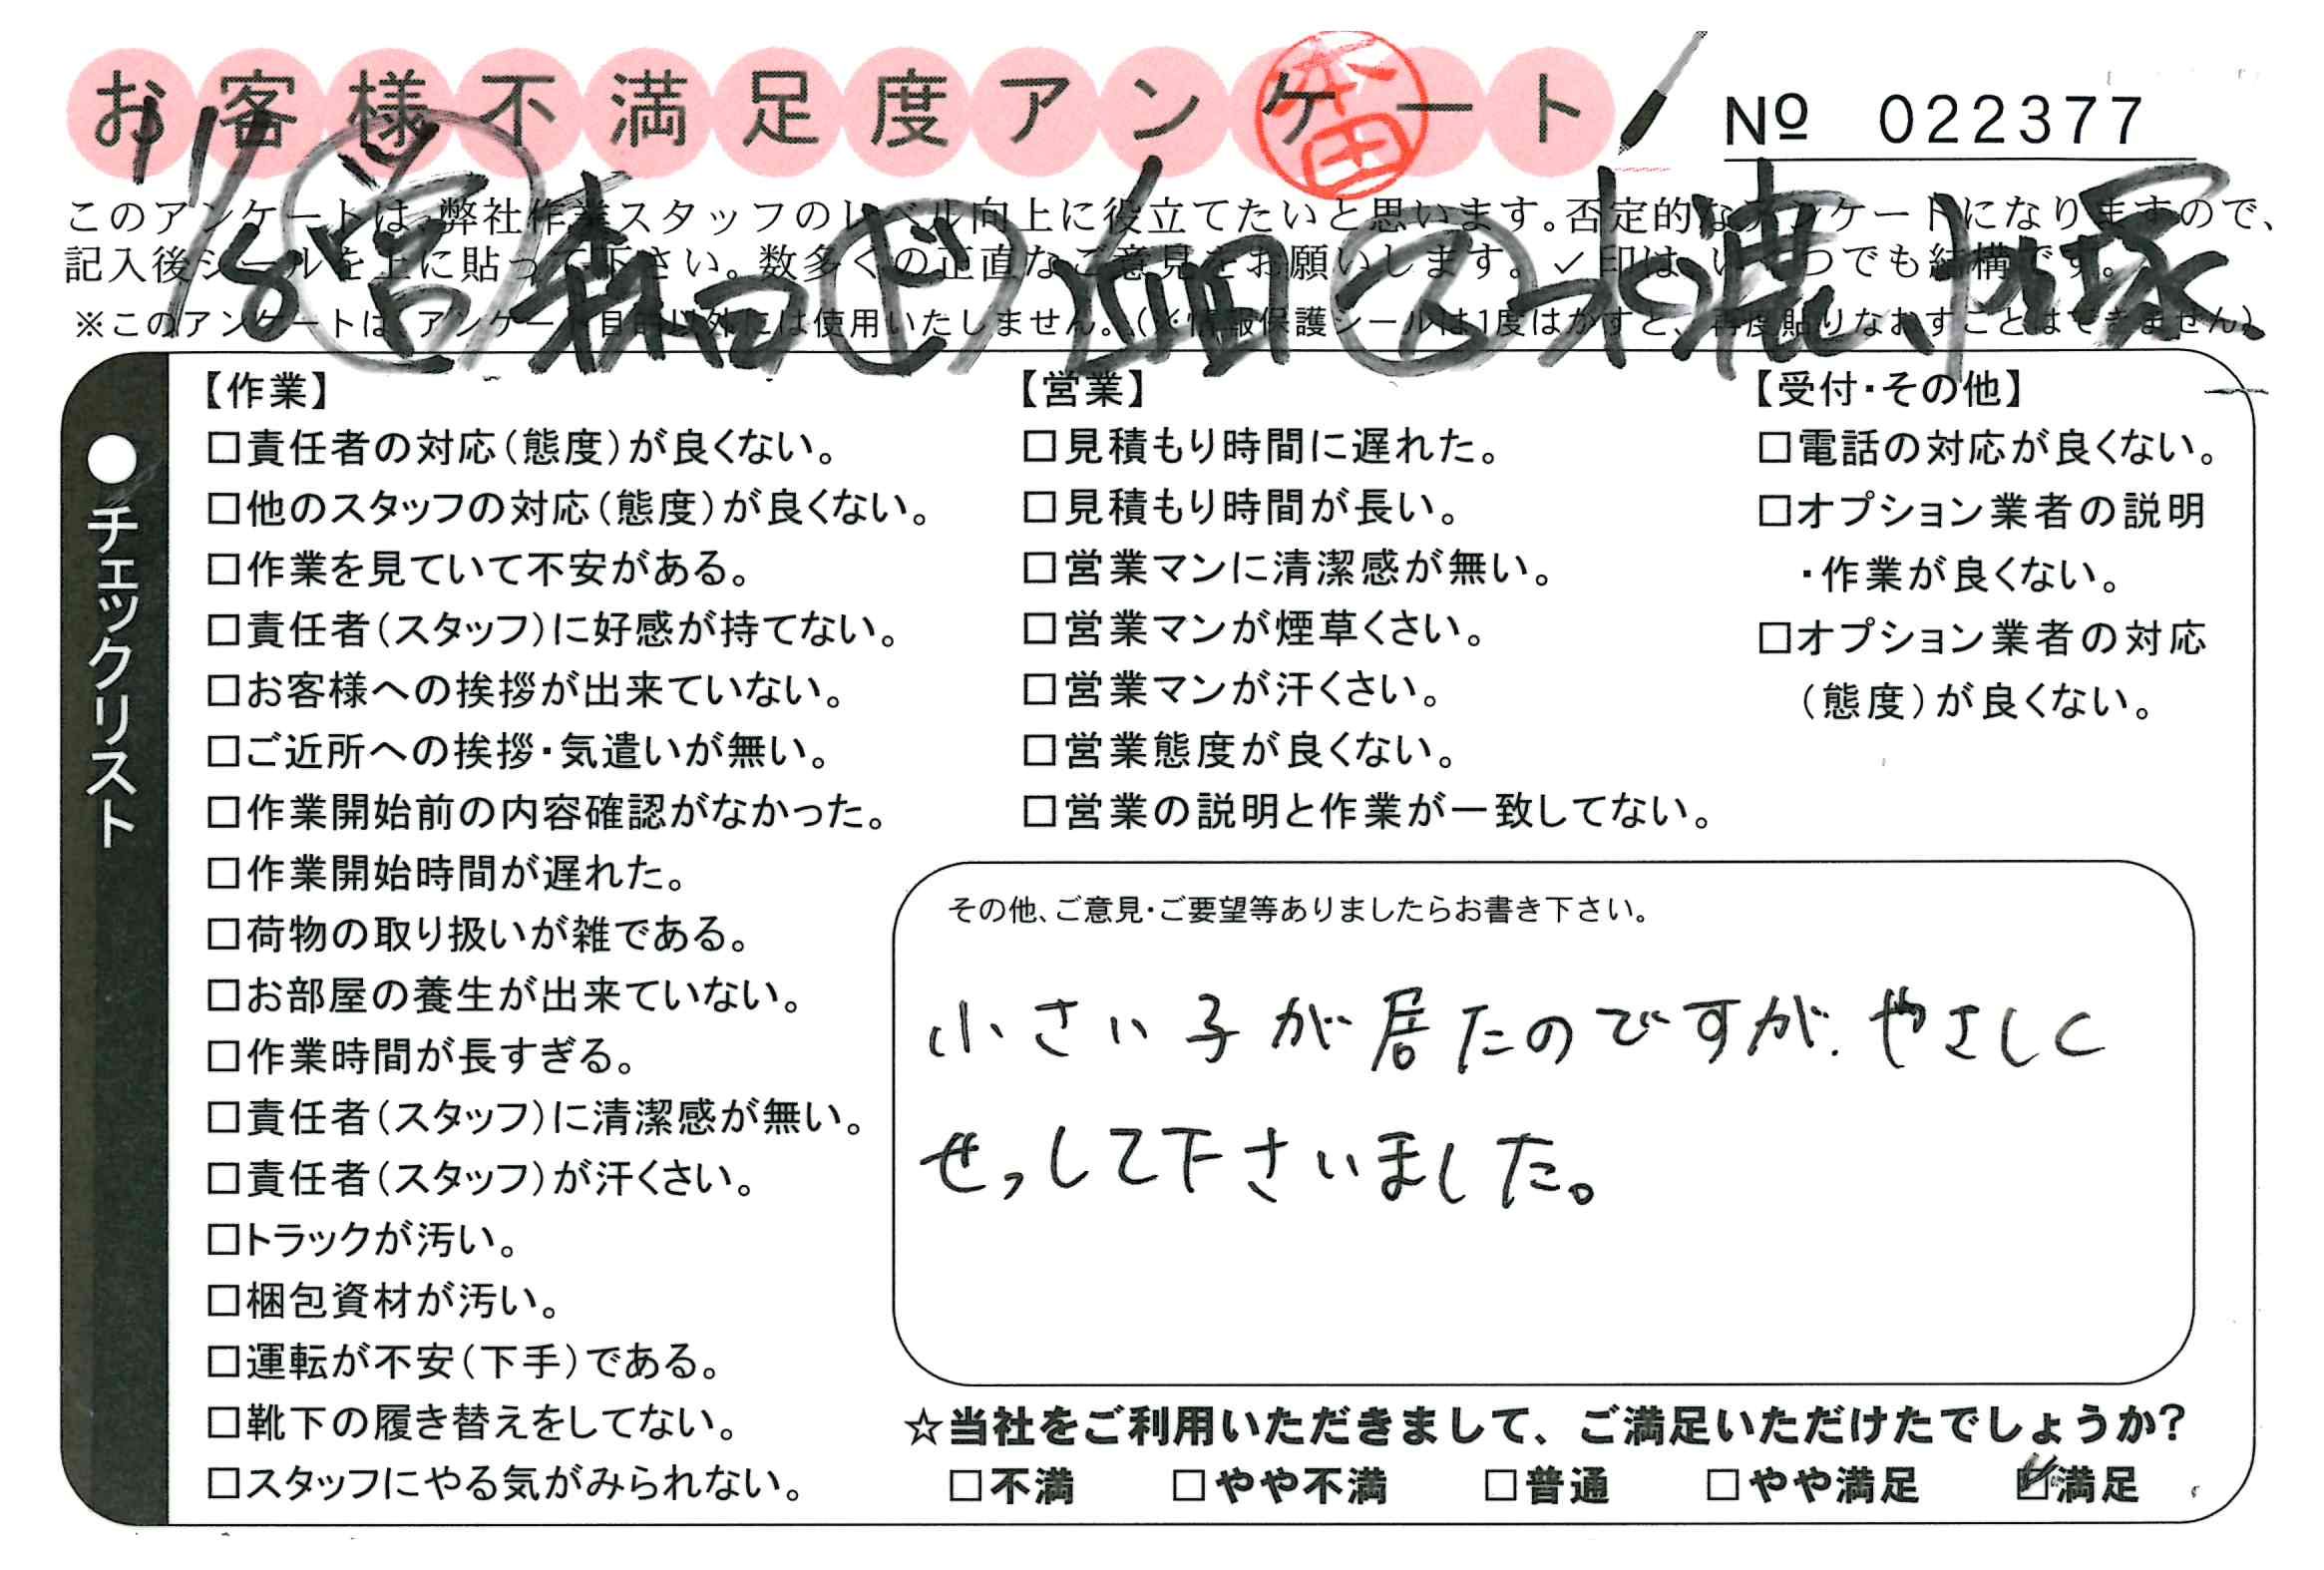 お客様不満足度アンケート
№ 022377
このアンケートは、弊社作業スタッフのレベル向上に役立てたいと思います。否定的なアンケートになりますので、
記入後シールを上に貼って下さい。数多くの正直なご意見をお願いします。✓印は、いくつでも結構です。
※このアンケートは、アンケート目的以外には使用いたしません。(※情報保護シールは1度はがすと、再度貼りなおすことはできません)
11/8 営 森田
●チェックリスト
【作業】
□責任者の対応(態度)が良くない。
□他のスタッフの対応(態度)が良くない。
□作業を見ていて不安がある。
□責任者(スタッフ)に好感が持てない。
□お客様への挨拶が出来ていない。
□ご近所への挨拶・気遣いが無い。
□作業開始前の内容確認がなかった。
□作業開始時間が遅れた。
□荷物の取り扱いが雑である。
□お部屋の養生が出来ていない。
□作業時間が長すぎる。
□責任者(スタッフ)に清潔感が無い。
□責任者(スタッフ)が汗くさい。
□トラックが汚い。
□梱包資材が汚い。
□運転が不安(下手)である。
□靴下の履き替えをしてない。
□スタッフにやる気がみられない。
【営業】
□見積もり時間に遅れた。
□見積もり時間が長い。
□営業マンに清潔感が無い。
□営業マンが煙草くさい。
□営業マンが汗くさい。
□営業態度が良くない。
□営業の説明と作業が一致してない。
【受付・その他】
□電話の対応が良くない。
□オプション業者の説明
・作業が良くない。
□オプション業者の対応
(態度)が良くない。
その他、ご意見・ご要望等ありましたらお書き下さい。
小さい子が居たのですが、やさしく
せっして下さいました。
☆当社をご利用いただきまして、ご満足いただけたでしょうか?
□不満 □やや不満 □普通 □やや満足 ☑満足